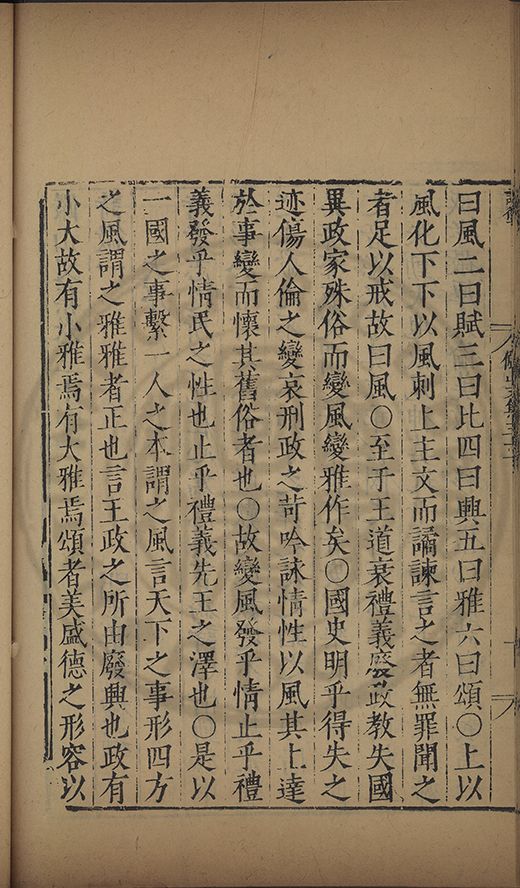 曰風二曰賦三曰比四曰興五曰雅六曰頌〇上以
風化下下以風刺上主文而譎諫言之者無罪聞之
者足以戒故曰風〇至于王道衰禮義廢政教失國
異政家殊俗而變風變雅作矣〇國史明乎得失之
迹傷人倫之變哀刑政之苛吟詠情性以風其上達
於事變而懷其舊俗者也〇故變風發乎情止乎禮
義發乎情民之性也止乎禮義先王之澤也〇是以
一國之事繫一人之本謂之風言天下之事形四方
之風謂之雅雅者正也言王政之所由廢興也政有
小大故有小雅焉有大雅焉頌者美盛德之形容以